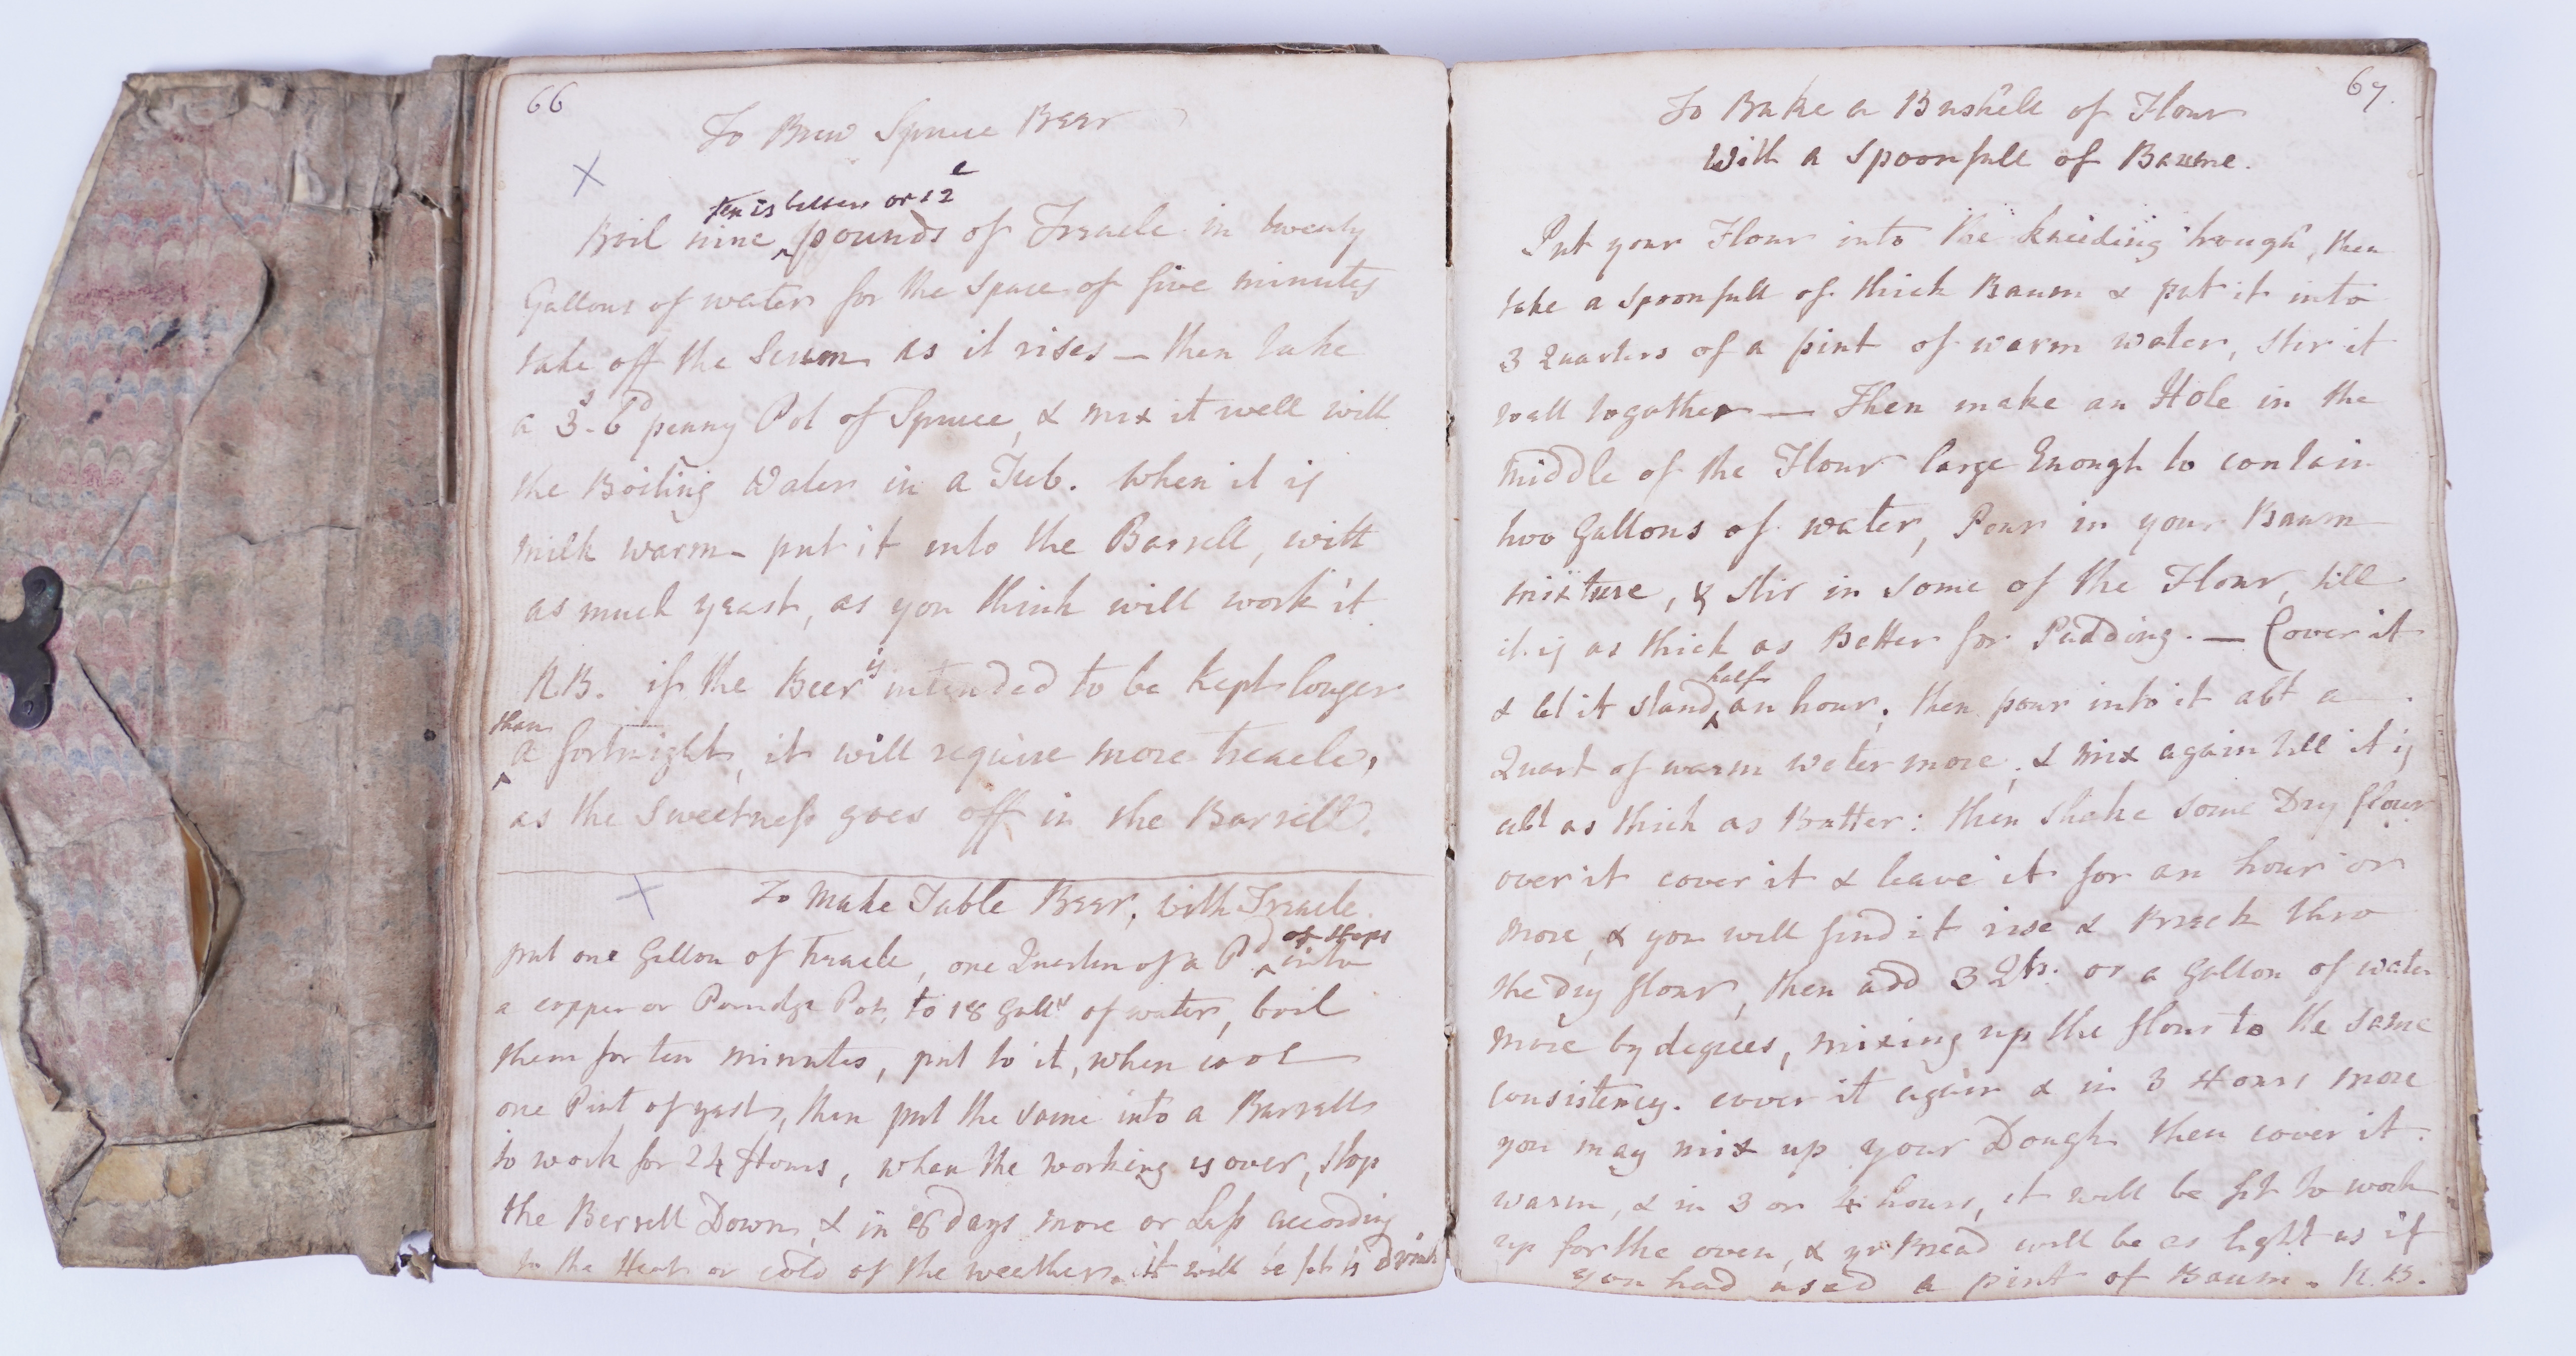 66
To Brew Spruce Beer
ten is better or 12
Boil nine pounds of Treacle in twenty
Gallons of water for the space of five minutes
take off the Scum as it rises — then take
a 3s-6d penny Pot of Spruce, & mix it well with
the Boiling Water in a Tub. When it is
milk warm put it into the Barrell, with
as much yeast, as you think will work it.
NB. if the Beer is intended to be kept longer
than
a fortnight, it will require more treacle,
as the Sweetness goes off in the Barrell.
To Make Table Beer, with Treacle.
of Hops
put one Gallon of treacle, one Quarter of a Pd into
a copper or Porridge Pot, to 18 Galls of water, boil
them for ten minutes, put to it, when cool
one Pint of yest, then put the same into a Barrell
to work for 24 Hours, when the working is over, stop
the Barrell Down, & in 8 days more or Less according
to the Heat or cold of the weather. it will be fit to Drink
67.
To Bake a Bushell of Flour
With a Spoonfull of Baume.
Put your Flour into the kneeding trough, then
take a Spoonfull of thick Baum & put it into
3 Quarters of a pint of warm water, stir it
well together — Then make an Hole in the
middle of the Flour large Enough to contain
two Gallons of water, Pour in your Baum
mixture, & stir in some of the Flour, till
it is as thick as Batter for Pudding. — Cover it
half
& let it stand an hour. then pour into it abt a
Quart of warm water more, & mix again till it is
abt as thick as Batter: then shake some Dry flour
over it cover it & leave it for an hour or
more, & you will find it rise & Break thro
the dry flour, then add 3 Qts. or a Gallon of water
more by degrees, mixing up the flour to the same
consistency. cover it again & in 3 Hours more
you may mix up your Dough then cover it
warm, & in 3 or 4 hours, it will be fit to work
up for the oven, & yr Bread will be as light as if
you had used a pint of Baum. N.B.